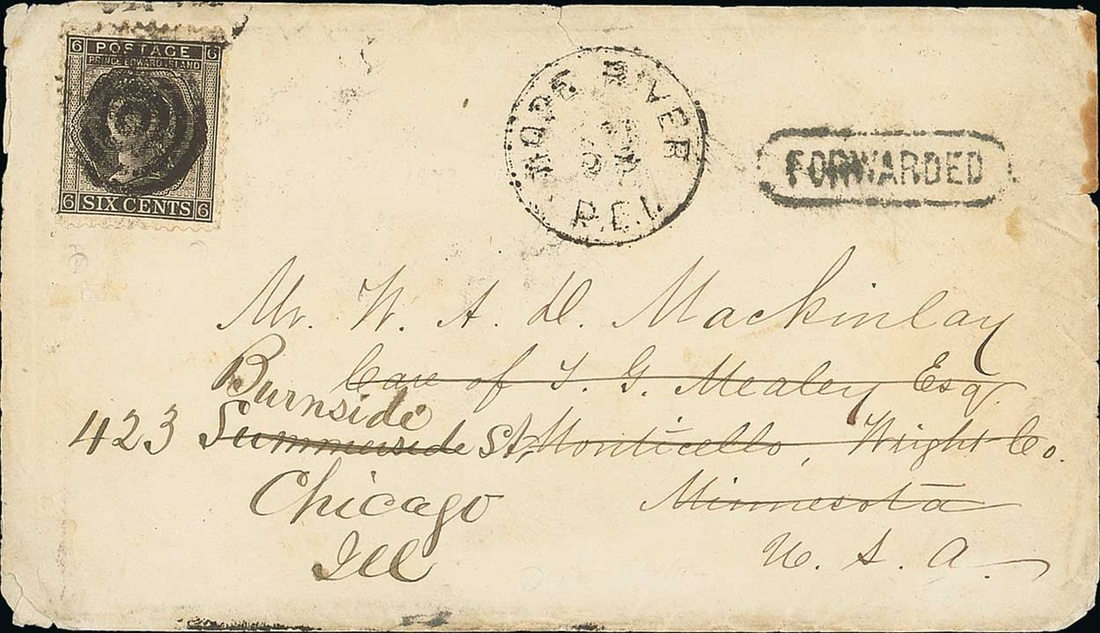 6 POSTAGE 6
PRINCE EDWARD ISLAND
6 SIX CENTS 6
HOPE RIVER
P.E.I.
FORWARDED
Mr. W. A. D. Mackinlay
Care of T. G. Mealey Esq.
Burnside
423 Summerside St. Monticello, Wright Co.
Chicago Minnesota
Ill U. S. A.